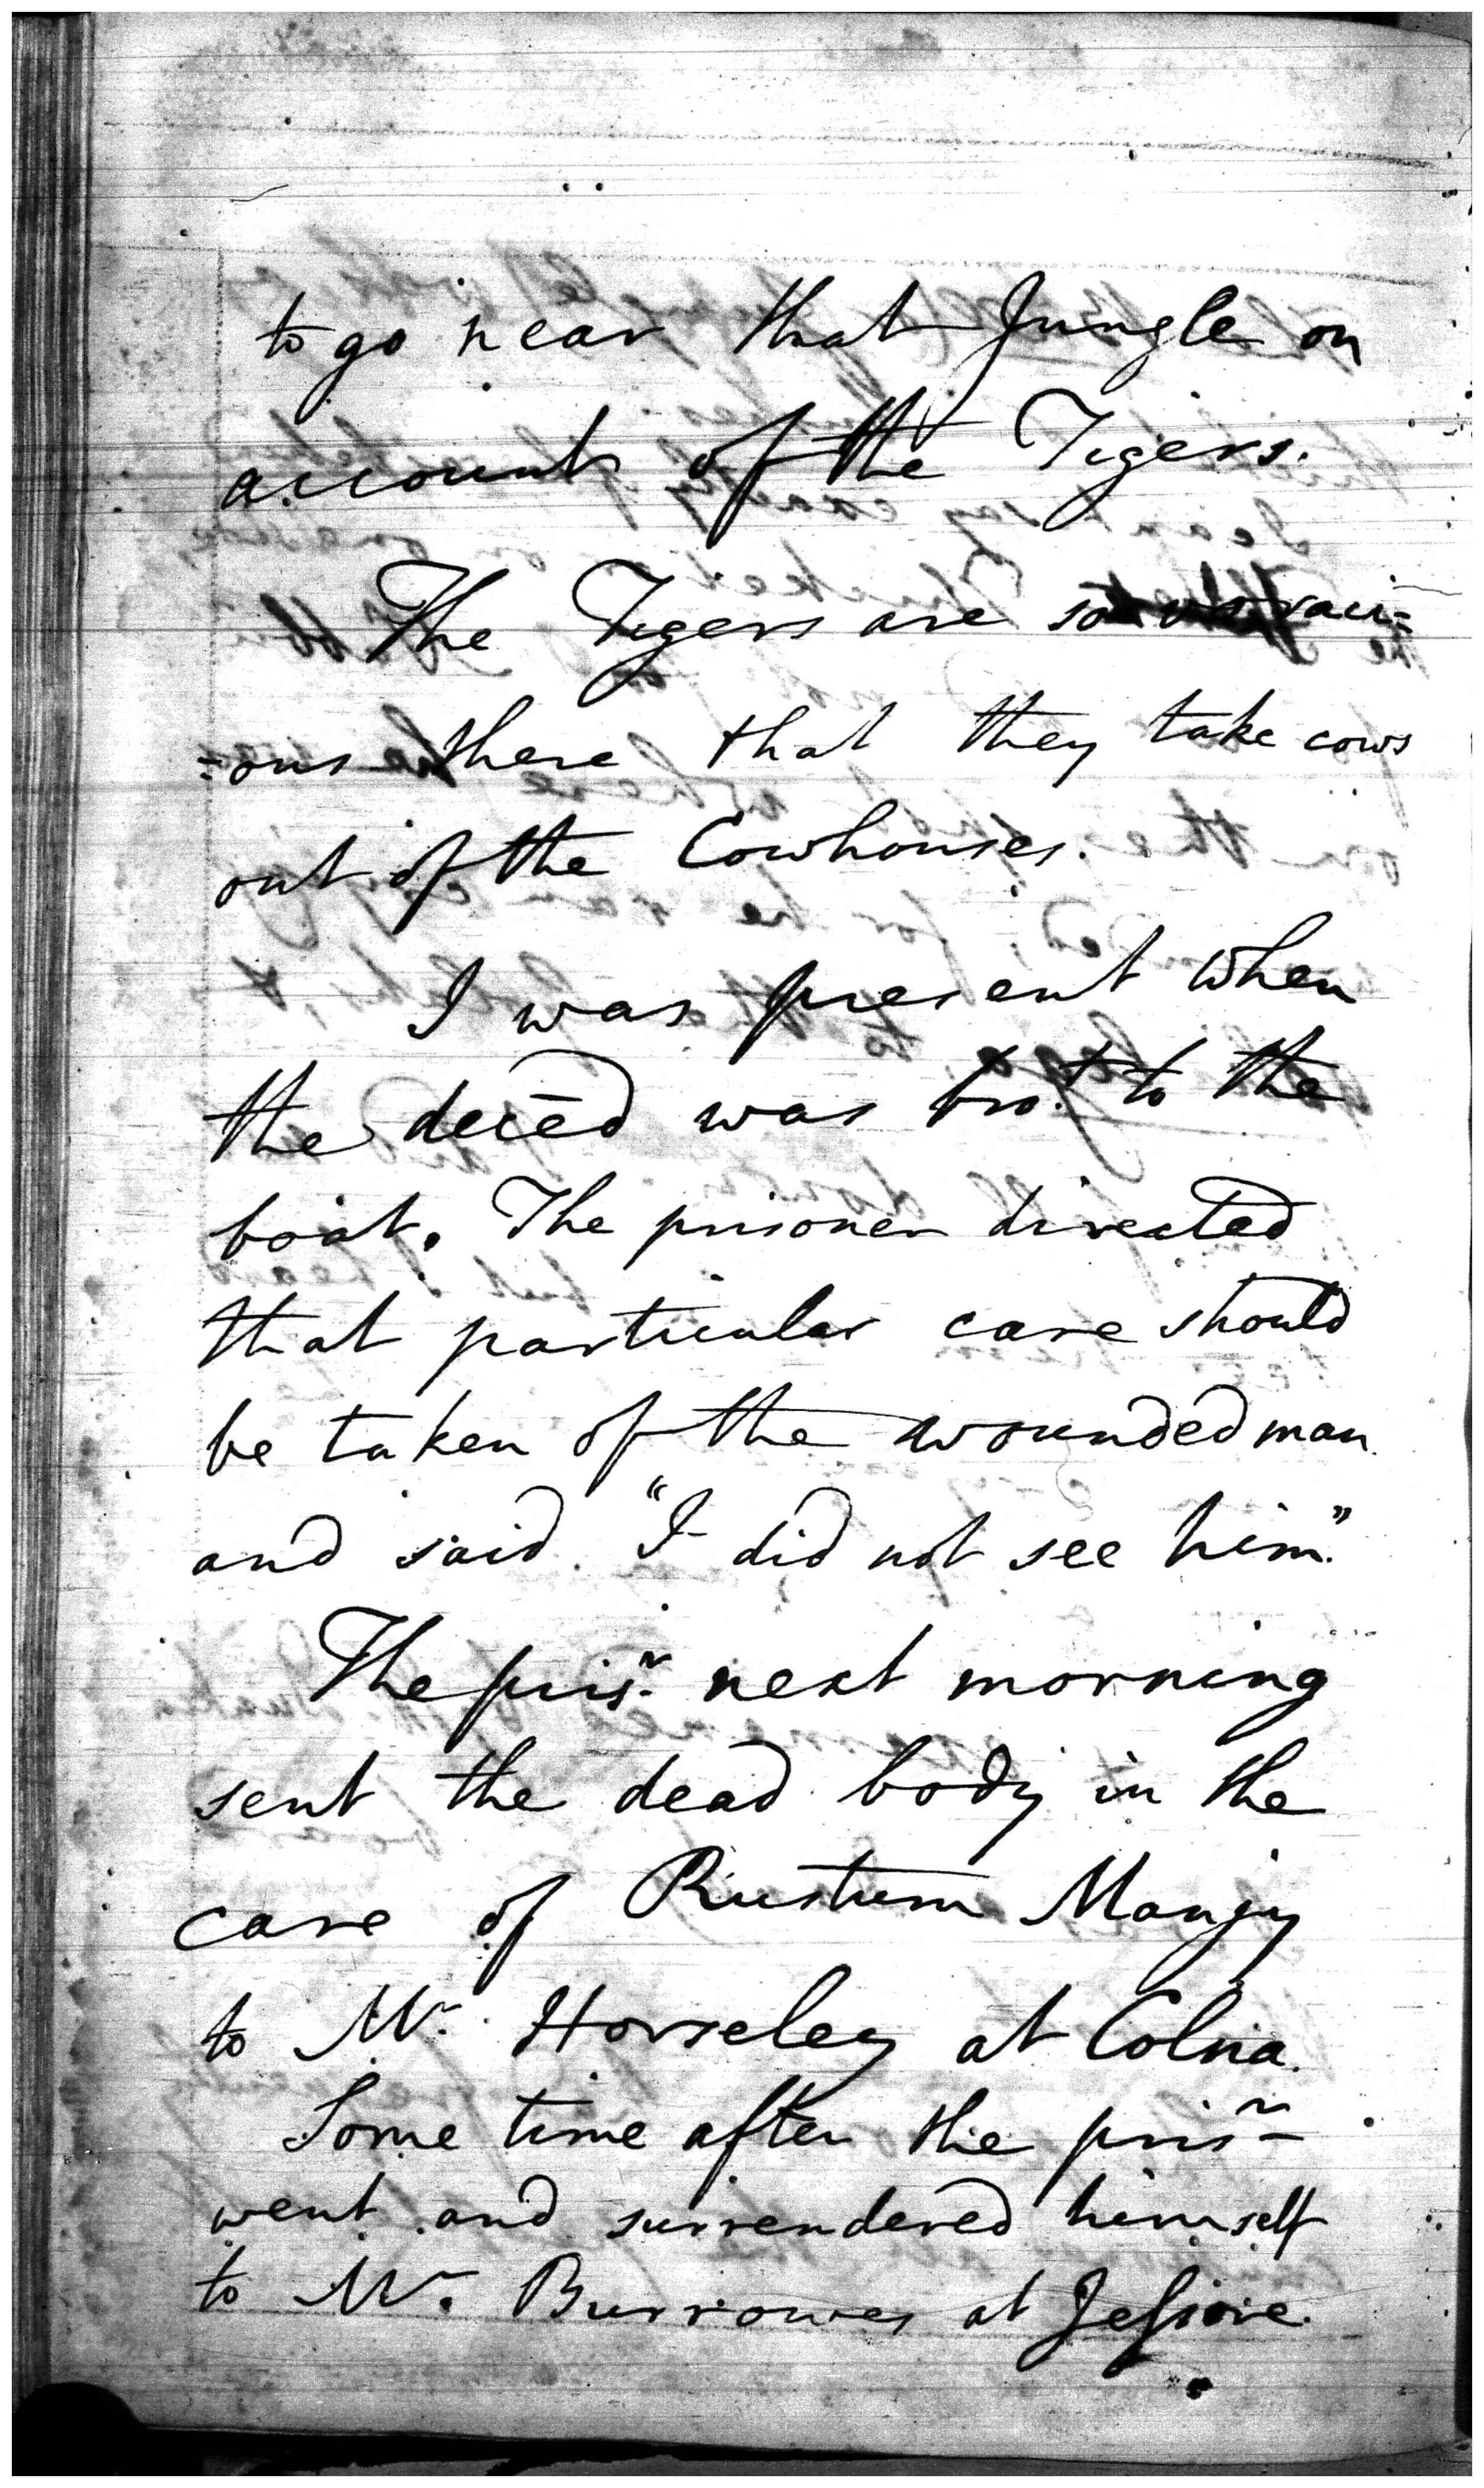 to go near that Jungle on
account of the Tigers.
The Tigers are so voraci=
=ous there that they take cows
out of the Cowhouses.
I was present when
the deced was bro.t to the
boat. The prisoner directed
that particular care should
be taken of the wounded man
and said "I did not see him."
The pris.r next morning
sent the dead body in the
care of Rustum Mangy
to Mr. Horseley at Colna.
Some time after the prisr
went and surrendered himself
to Mr. Burrowes at Jessore.